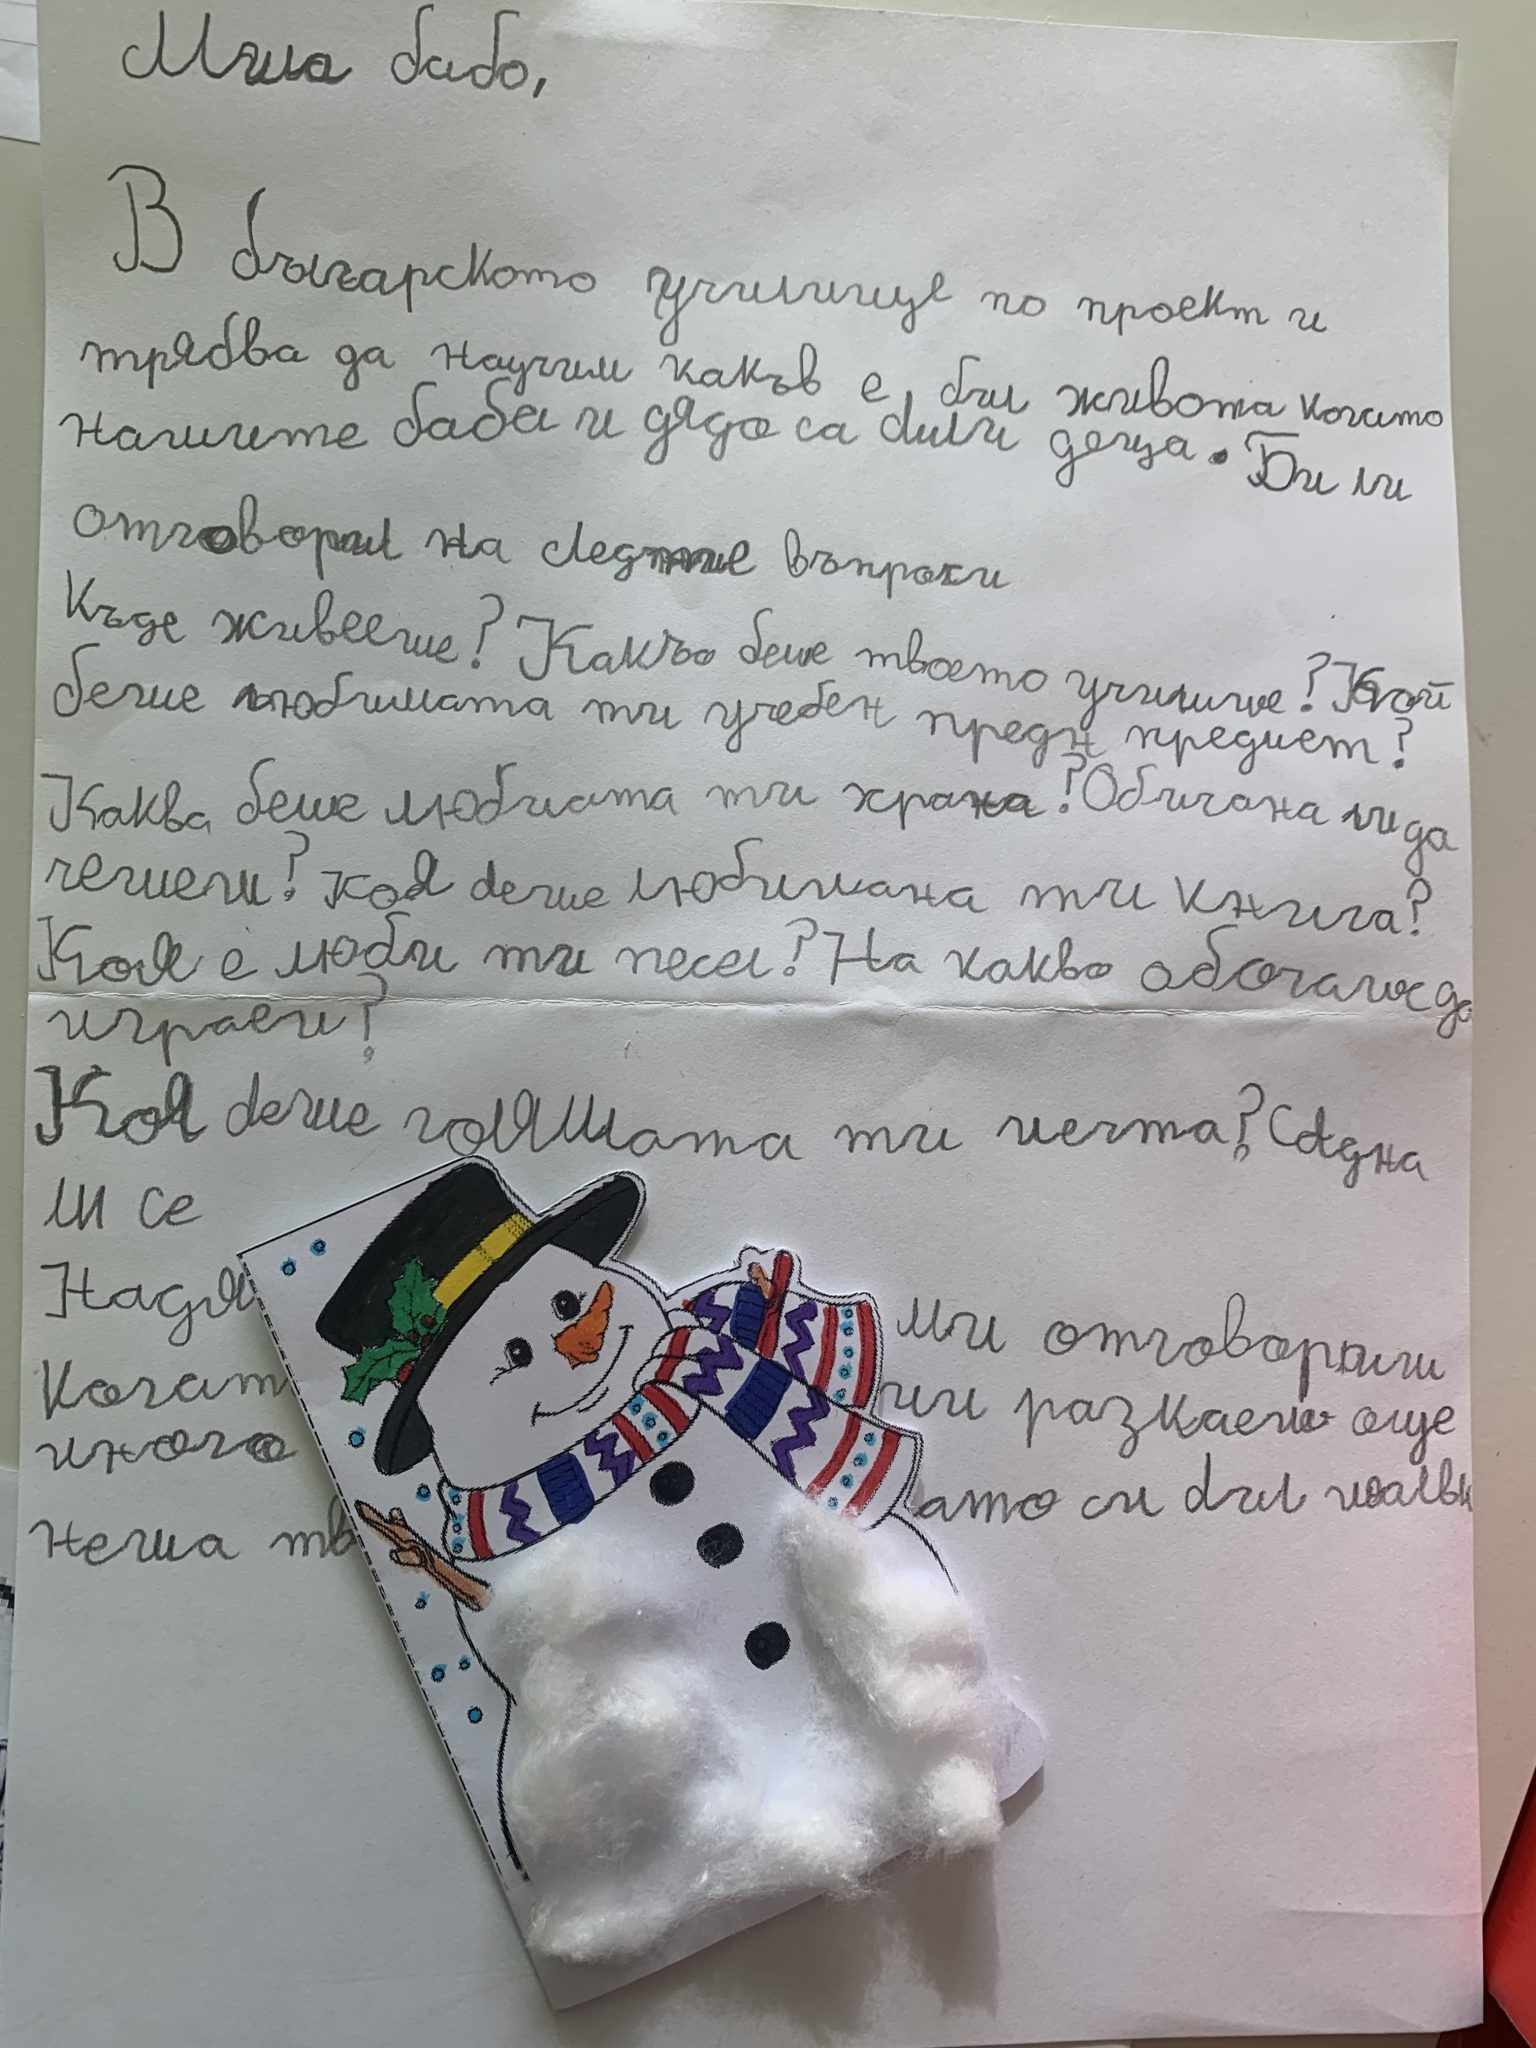 Мила бабо,
В българското училище по проект и
трябва да научим какъв е бил живота когато
нашите баби и дядо са били деца. Би ли
отговорил на следните въпроси
Къде живееше? Какъво беше твоето училище? Кой
беше любимата ти учебен предн предмет?
Каква беше любимата ти храна? Обичана ли да
четеш? Коя беше любимана ти книга?
Коя е люби ти песен? На какво обочаше да
играеш?
Коя беше голямата ти мечта? Сбъдна
ли се
Надя ми отговориш
Когат разкаеш още
много ато си бил малък
неща тв